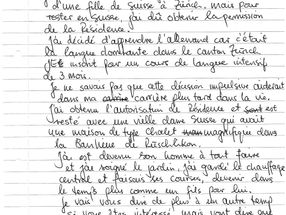 d'une fille de Suisse à Zürich, mais pour
rester en Suisse, j'ai dû obtenir la permission
de la Résidence.
J'ai décidé d'apprendre l'allemand car c'était
la langue dominante dans le Canton Zürich
inscrit par un cours de langue intensif
de 3 mois.
Je ne savais pas que cette décision impulsive aiderait
dans ma carrière plus tard dans la vie.
J'ai obtenu l'autorisation de Résidence et
resté avec une vielle dame Suisse qui avait
une maison de type Chalet magnifique dans
la Banlieue de Rüschlikon.
J'ai est devenu son homme à tout faire
et j'ai soigné le jardin, j'ai gardé le chauffage
central et faisant ses courses, devenir dans
le temps plus comme un fils pour lui.
Je vais vous dire de plus à un autre temps
si vous êtes intéressé, mais vous dire que